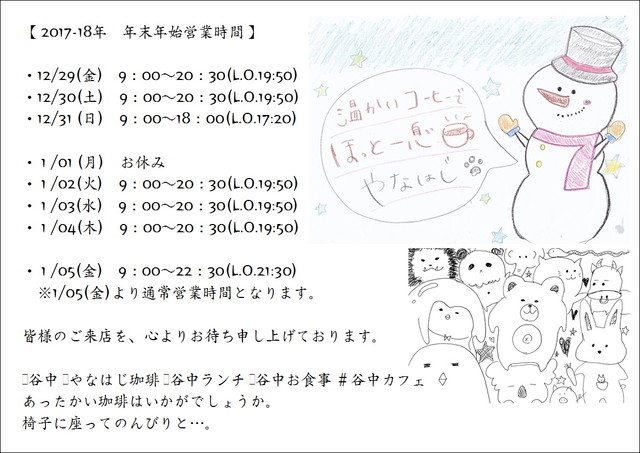 【 2017-18年　年末年始営業時間 】
・12/29(金)　9：00～20：30(L.O.19:50)
・12/30(土)　9：00～20：30(L.O.19:50)
・12/31 (日)　9：00～18：00(L.O.17:20)
・ 1 /01 (月)　お休み
・ 1 /02(火)　9：00～20：30(L.O.19:50)
・ 1 /03(水)　9：00～20：30(L.O.19:50)
・ 1 /04(木)　9：00～20：30(L.O.19:50)
・ 1 /05(金)　9：00～22：30(L.O.21:30)
※1/05(金)より通常営業時間となります。
皆様のご来店を、心よりお待ち申し上げております。
谷中 やなはじ珈琲 谷中ランチ 谷中お食事 ＃谷中カフェ
あったかい珈琲はいかがでしょうか。
椅子に座ってのんびりと…。
温かいコーヒーで
ほっと一息
やなはじ